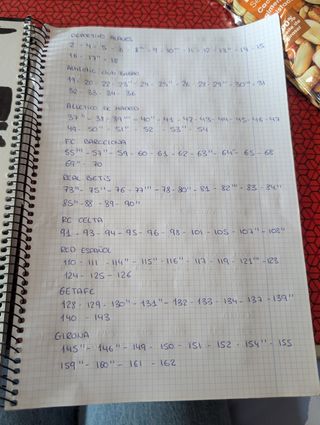 DEPORTIVO ALAVES
2 - 4 - 5 - 6 - 8" - 9 - 10" - 11 - 12 - 13" - 14 - 15
16 - 17" - 18
ATHLETIC CLUB BILBAO
19 - 20 - 22 - 23" - 24 - 25" - 26 - 28 - 29" - 30" - 31
32 - 33 - 34 - 36
ATLETICO DE MADRID
37" - 38 - 39" - 40" - 41 - 42 - 43 - 44 - 45 - 46 - 47
49 - 50" - 51" - 52 - 53" - 54
FC BARCELONA
55"" - 57" - 59 - 60 - 61 - 62 - 63" - 64" - 65 - 68
69" - 70
REAL BETIS
73" - 75" - 76 - 77"" - 78 - 80" - 81 - 82"" - 83 - 84"
85" - 88 - 89 - 90"
RC CELTA
91 - 93 - 94 - 95 - 96 - 98 - 101 - 105 - 107" - 108"
RCD ESPAÑOL
110 - 111 - 114" - 115" - 116" - 117 - 119 - 121"" - 123
124 - 125 - 126
GETAFE
128 - 129 - 130" - 131" - 132 - 133 - 134 - 137 - 139"
140 - 143
GIRONA
145" - 146" - 149 - 150 - 151 - 152 - 154" - 155
159" - 160" - 161 - 162